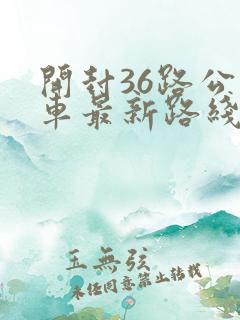 開封36路公
車最新路綫
玉無弦
未經同意禁止轉載